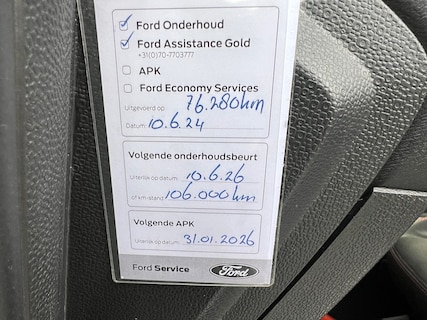 Ford Onderhoud
Ford Assistance Gold
+31(0)70-7703777
APK
Ford Economy Services
Uitgevoerd op: 76.280km
Datum: 10.6.24
Volgende onderhoudsbeurt
Uiterlijk op datum: 10.6.26
of km-stand: 106.000km
Volgende APK
Uiterlijk op datum: 31.01.2026
Ford Service
Ford